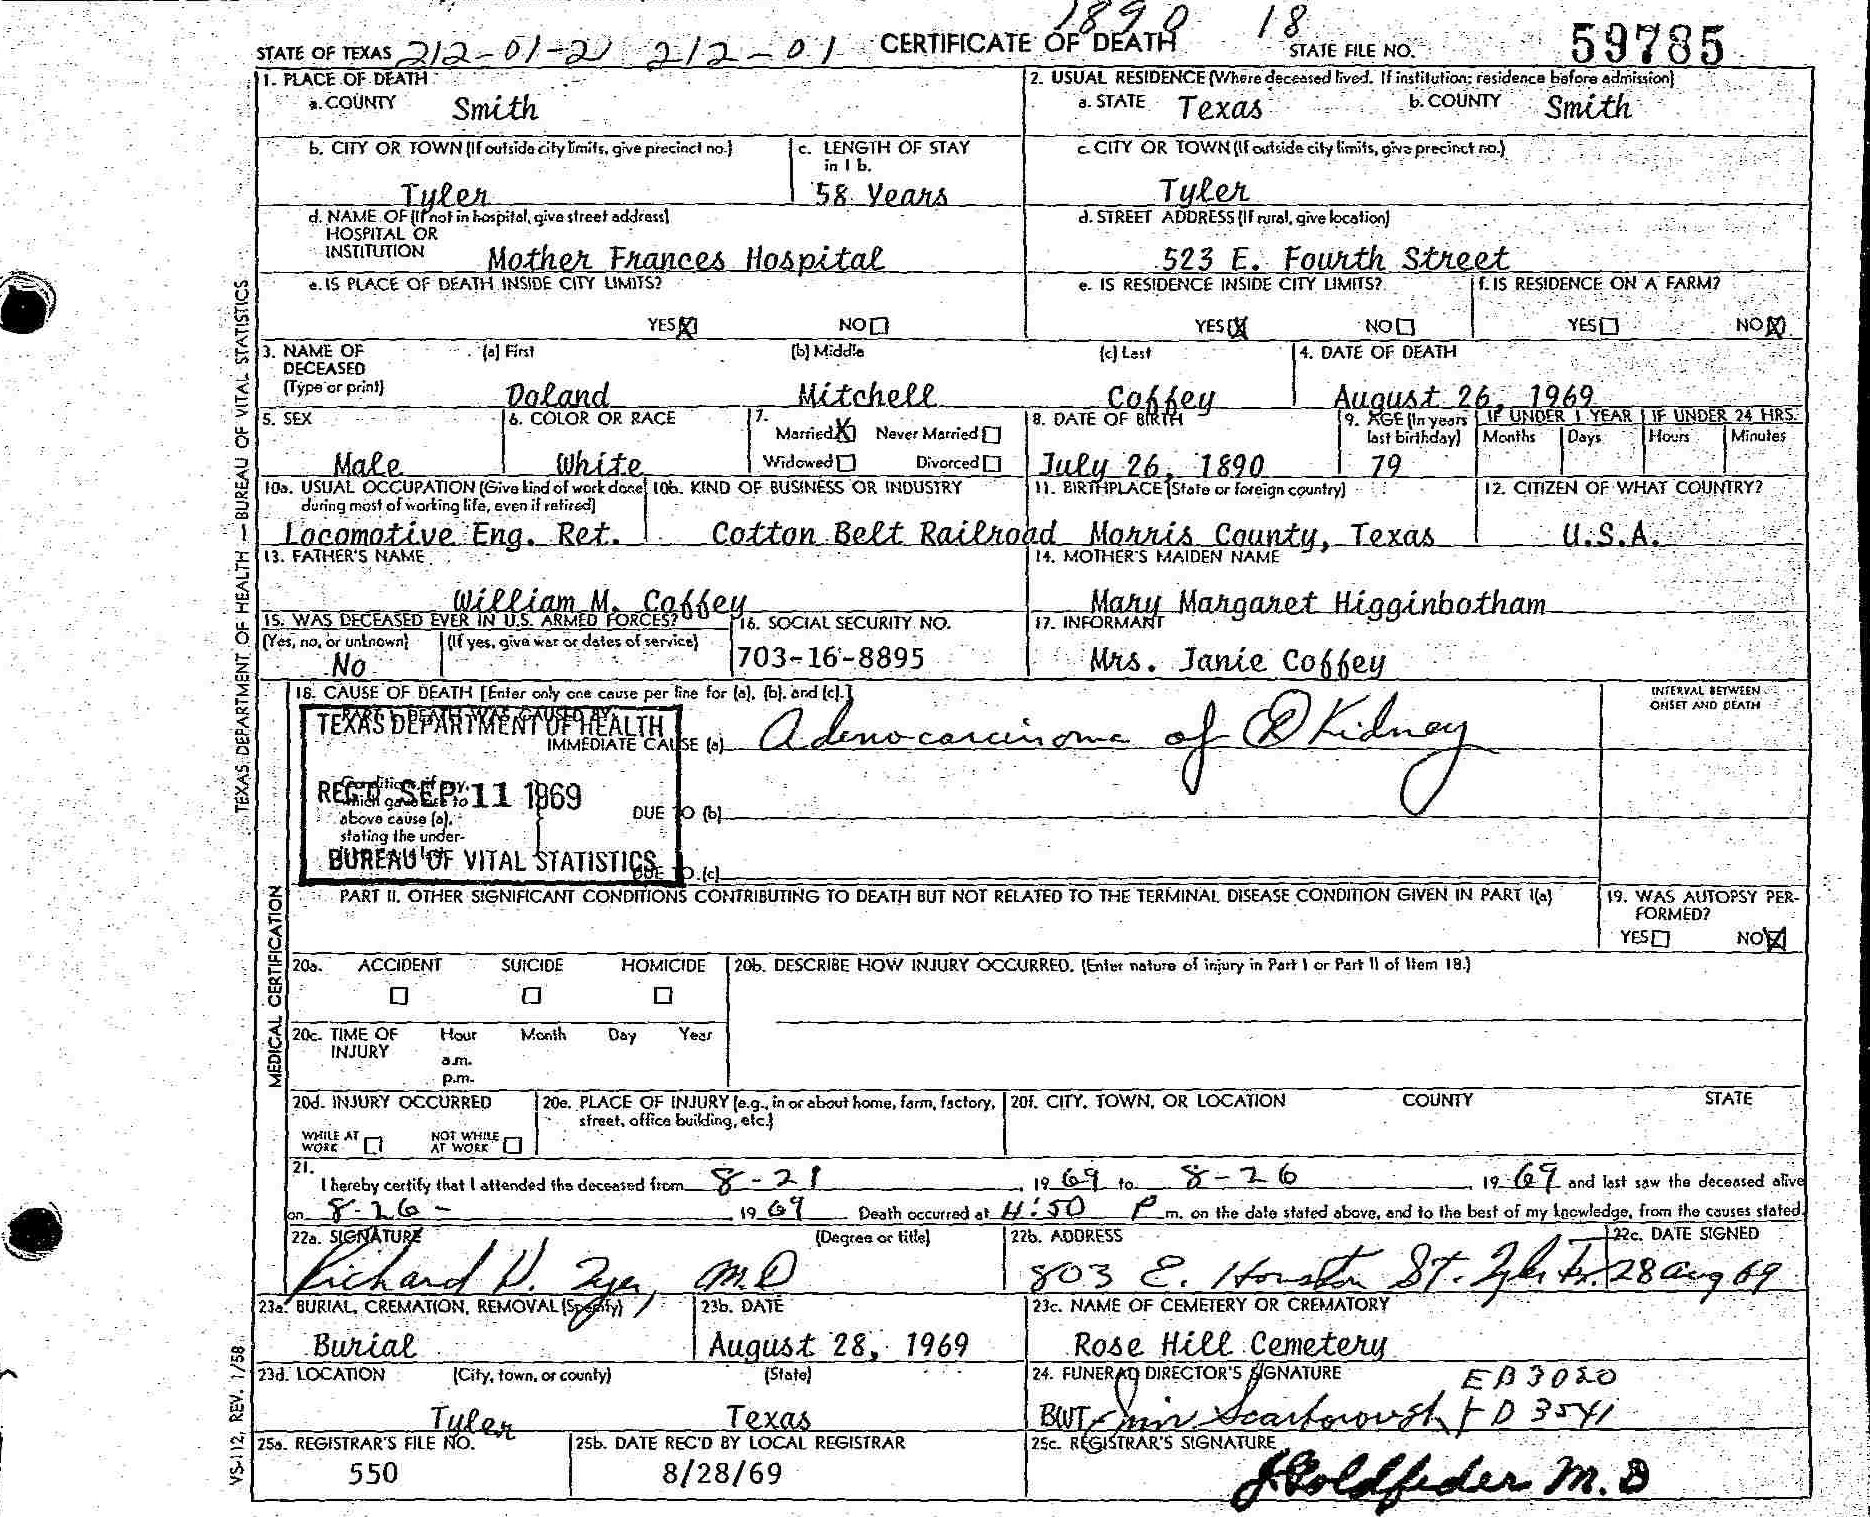 1890 18
STATE OF TEXAS 212-01-21 212-01 CERTIFICATE OF DEATH STATE FILE NO. 59785
1. PLACE OF DEATH
a. COUNTY Smith
2. USUAL RESIDENCE (Where deceased lived. If institution: residence before admission)
a. STATE Texas b. COUNTY Smith
b. CITY OR TOWN (If outside city limits, give precinct no.)
Tyler
c. LENGTH OF STAY
in 1 b.
58 Years
c. CITY OR TOWN (If outside city limits, give precinct no.)
Tyler
d. NAME OF (If not in hospital, give street address)
HOSPITAL OR
INSTITUTION Mother Frances Hospital
d. STREET ADDRESS (If rural, give location)
523 E. Fourth Street
e. IS PLACE OF DEATH INSIDE CITY LIMITS?
YES X NO
e. IS RESIDENCE INSIDE CITY LIMITS?
YES X NO
f. IS RESIDENCE ON A FARM?
YES NO X
3. NAME OF
DECEASED
(Type or print)
(a) First (b) Middle (c) Last
Doland Mitchell Coffey
4. DATE OF DEATH
August 26, 1969
5. SEX
Male
6. COLOR OR RACE
White
7.
Married X Never Married
Widowed Divorced
8. DATE OF BIRTH
July 26, 1890
9. AGE (In years
last birthday)
79
IF UNDER 1 YEAR IF UNDER 24 HRS.
Months Days Hours Minutes
10a. USUAL OCCUPATION (Give kind of work done
during most of working life, even if retired)
Locomotive Eng. Ret.
10b. KIND OF BUSINESS OR INDUSTRY
Cotton Belt Railroad
11. BIRTHPLACE (State or foreign country)
Morris County, Texas
12. CITIZEN OF WHAT COUNTRY?
U.S.A.
13. FATHER'S NAME
William M. Coffey
14. MOTHER'S MAIDEN NAME
Mary Margaret Higginbotham
15. WAS DECEASED EVER IN U.S. ARMED FORCES?
(Yes, no, or unknown) (If yes, give war or dates of service)
No
16. SOCIAL SECURITY NO.
703-16-8895
17. INFORMANT
Mrs. Janie Coffey
18. CAUSE OF DEATH [Enter only one cause per line for (a), (b), and (c).]
PART I. DEATH WAS CAUSED BY:
IMMEDIATE CAUSE (a) Adenocarcinoma of R Kidney
INTERVAL BETWEEN
ONSET AND DEATH
TEXAS DEPARTMENT OF HEALTH
REC'D SEP 11 1969
BUREAU OF VITAL STATISTICS
Conditions, if any,
which gave rise to
above cause (a),
stating the under-
DUE TO (b)
DUE TO (c)
PART II. OTHER SIGNIFICANT CONDITIONS CONTRIBUTING TO DEATH BUT NOT RELATED TO THE TERMINAL DISEASE CONDITION GIVEN IN PART I(a)
19. WAS AUTOPSY PER-
FORMED?
YES NO X
20a. ACCIDENT SUICIDE HOMICIDE
20b. DESCRIBE HOW INJURY OCCURRED. (Enter nature of injury in Part I or Part II of Item 18.)
20c. TIME OF
INJURY
Hour Month Day Year
a.m.
p.m.
20d. INJURY OCCURRED
WHILE AT
WORK
NOT WHILE
AT WORK
20e. PLACE OF INJURY (e.g., in or about home, farm, factory,
street, office building, etc.)
20f. CITY, TOWN, OR LOCATION COUNTY STATE
21.
I hereby certify that I attended the deceased from 8-21, 1969 to 8-26, 1969 and last saw the deceased alive
on 8-26- 1969 Death occurred at 4:50 P m. on the date stated above, and to the best of my knowledge, from the causes stated.
22a. SIGNATURE (Degree or title)
Richard M.D
22b. ADDRESS
803 E. Houston St. Tyler Tx.
22c. DATE SIGNED
28 Aug 69
23a. BURIAL, CREMATION, REMOVAL (Specify)
Burial
23b. DATE
August 28, 1969
23c. NAME OF CEMETERY OR CREMATORY
Rose Hill Cemetery
23d. LOCATION (City, town, or county) (State)
Tyler Texas
24. FUNERAL DIRECTOR'S SIGNATURE EB 3020
BWT Jim Scarborough FD 3541
25a. REGISTRAR'S FILE NO.
550
25b. DATE REC'D BY LOCAL REGISTRAR
8/28/69
25c. REGISTRAR'S SIGNATURE
J. Goldfeder M.D
TEXAS DEPARTMENT OF HEALTH — BUREAU OF VITAL STATISTICS
MEDICAL CERTIFICATION
VS-112, REV. 1/58